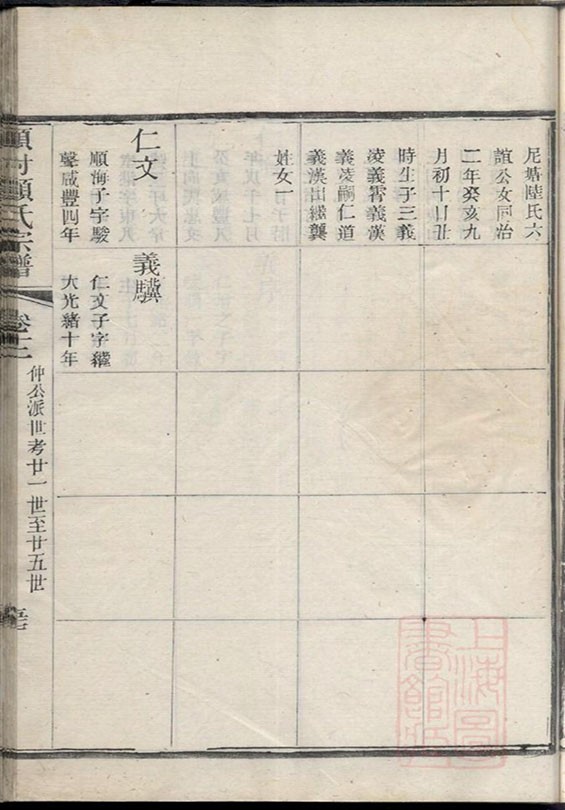 尼塘陸氏六
誼公女同治
二年癸亥九
月初十日丑
時生子三義
淩義霄義漢
義淩嗣仁道
義漢出繼龔
姓女一
仁文
順海子字駿
聲咸豐四年
義驥
仁文子字繼
大光緒十年
顧氏宗譜
卷十二
仲公派世考廿一世至廿五世
上海圖書館藏